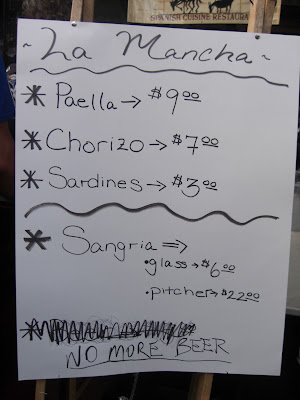 SPANISH CUISINE RESTAURA
~ La Mancha ~
* Paella → $9.00
* Chorizo → $7.00
* Sardines → $3.00
* Sangria ⇒
• glass → $6.00
• pitcher → $22.00
*
NO MORE BEER